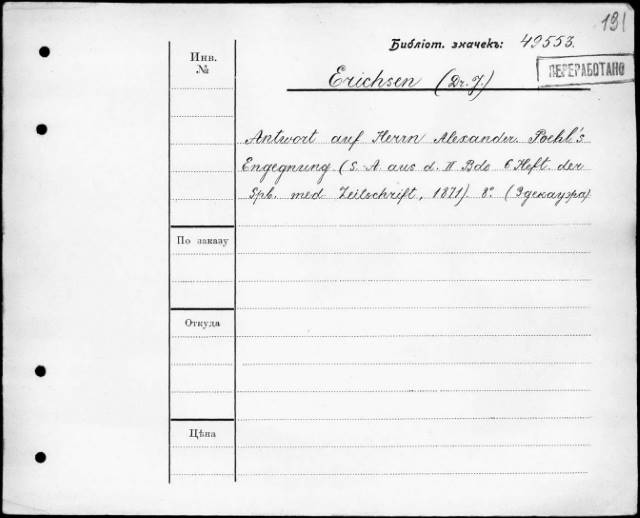 131
Библіот. значекъ: 49553.
ПЕРЕРАБОТАНО
Инв. №
Erichsen (Dr. J.)
Antwort auf Herrn Alexander Poehl's
Engegnung (S. A. aus d. II Bde 6 Heft. der
Spb. med. Zeilschrift, 1871). 8° (Эдекауэра)
По заказу
Откуда
Цѣна